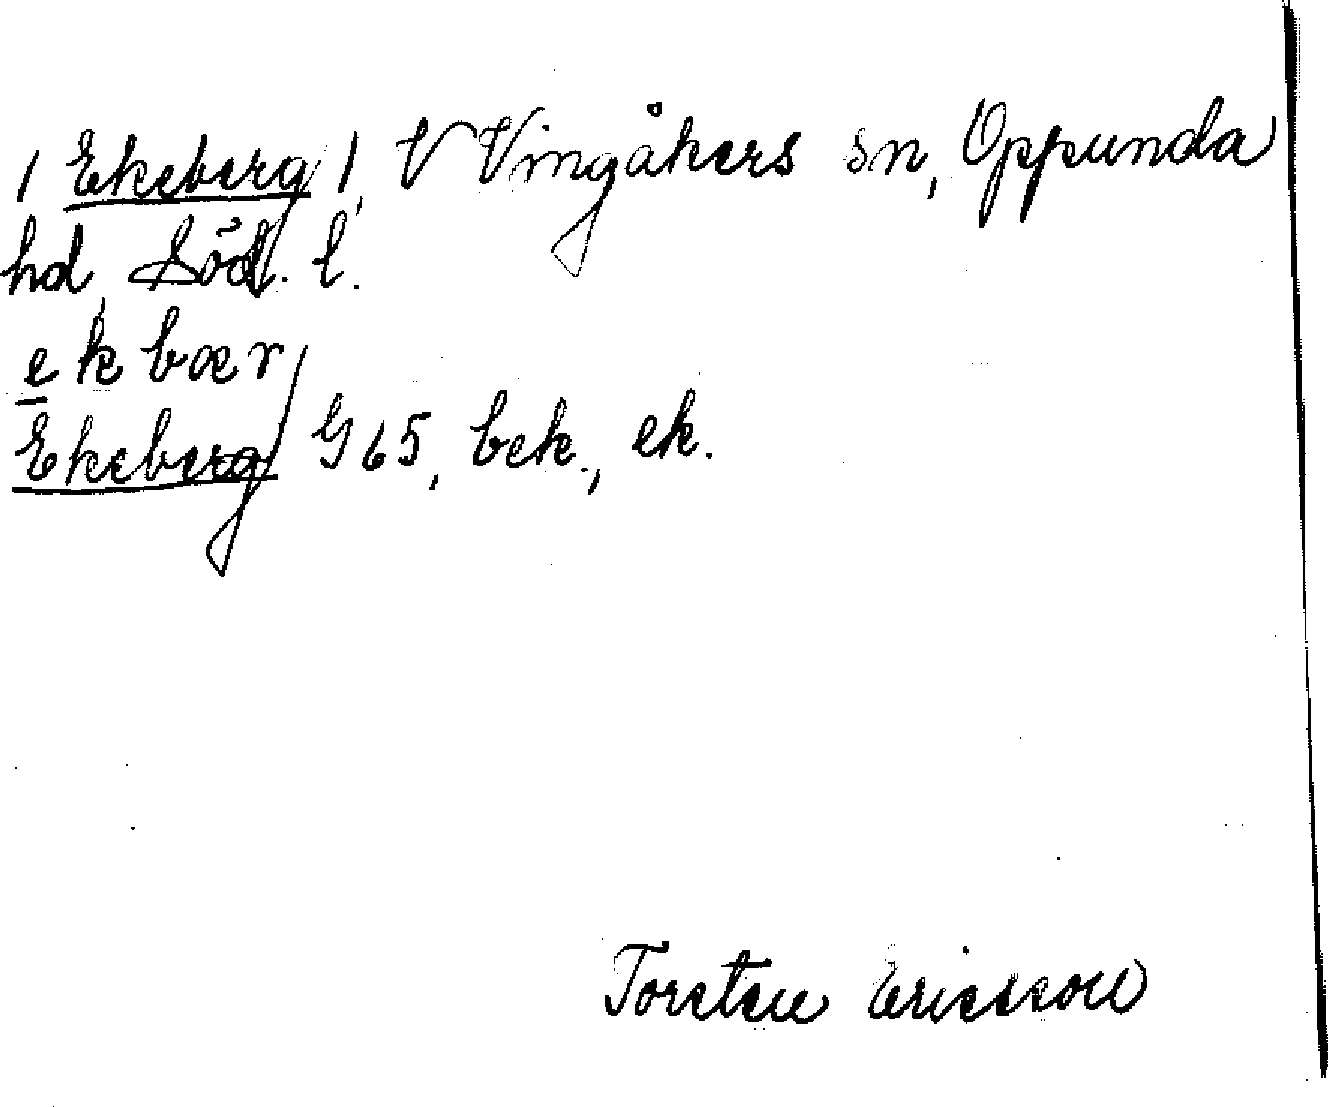 / Ekeberg /, V Vingåkers sn, Oppunda
hd, Söd. l.
ekbær
Ekeberg G65, bek., ek.
Torsten Ericsson